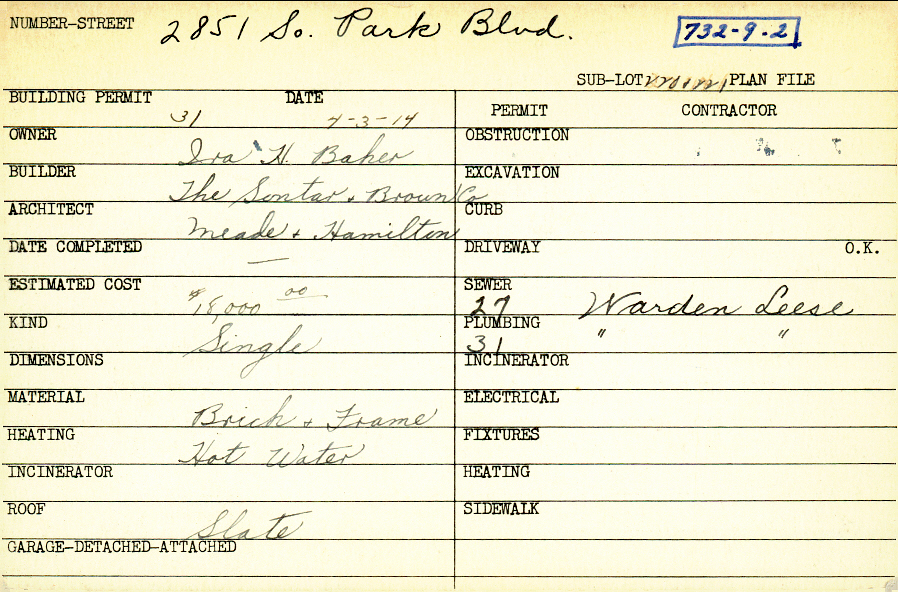 NUMBER-STREET 2851 So. Park Blvd. 732-9-2
SUB-LOT PLAN FILE
BUILDING PERMIT 31 DATE 4-3-14
OWNER Ira H. Baker
BUILDER The Sontar & Brown Co
ARCHITECT Meade & Hamilton
DATE COMPLETED —
ESTIMATED COST $18,000 00
KIND Single
DIMENSIONS
MATERIAL Brick & Frame
HEATING Hot Water
INCINERATOR
ROOF Slate
GARAGE-DETACHED-ATTACHED
PERMIT CONTRACTOR
OBSTRUCTION
EXCAVATION
CURB
DRIVEWAY O.K.
SEWER 27 Warden Leese
PLUMBING 31 " "
INCINERATOR
ELECTRICAL
FIXTURES
HEATING
SIDEWALK